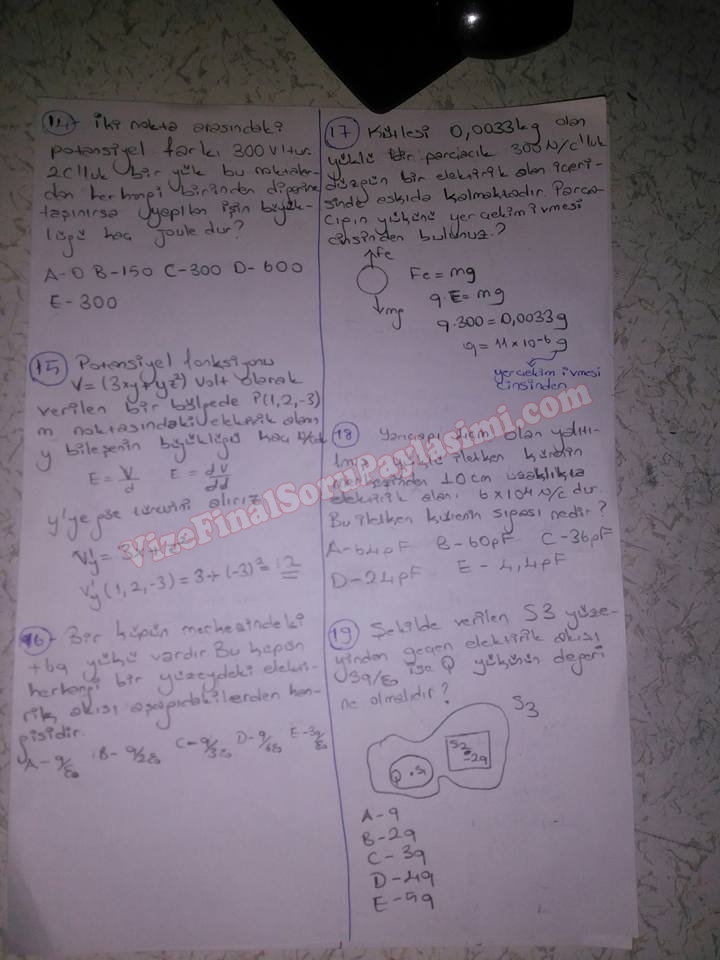 14- iki nokta arasındaki
potansiyel farkı 300 Vltur.
2C'luk bir yük bu noktalar-
dan herhangi birinden diğerine
taşınırsa yapılan işin büyük-
lüğü kaç jouledur?
A-0 B-150 C-300 D-600
E-300
15 Potansiyel fonksiyonu
V=(3xy+yz²) Volt olarak
verilen bir bölgede P(1,2,-3)
m noktasındaki elektrik alanı
y bileşenin büyüklüğü kaç
E = V/d E = dV/dd
y'ye göre türevini alırız
V'y = 3x+z²
V'y (1,2,-3) = 3+(-3)² = 12
16- Bir küpün merkezindeki
+6q yükü vardır Bu küpün
herhangi bir yüzeydeki elekt-
rik akısı aşağıdakilerden han-
gisidir.
A- q/ε0 B- q/2ε0 C- q/3ε0 D- q/6ε0 E- 3q/ε0
17 Kütlesi 0,0033kg olan
yüklü bir parçacık 300N/C'luk
düzgün bir elektirik alan içeri-
sinde askıda kalmaktadır Parça-
cığın yükünü yerçekim ivmesi
cinsinden bulunuz.?
Fe
mg
Fe = mg
q.E = mg
q.300 = 0,0033g
q = 11x10-6 g
yerçekim ivmesi
cinsinden
18 Yarıçapı olan yalıtı-
lmış yüklü iletken kürenin
merkezinden 10cm uzaklıkta
elektirik alanı 6x10⁴ N/C dur.
Bu iletken kürenin sığası nedir?
A-64pF B-60pF C-36pF
D-24pF E-4,4pF
19 Şekilde verilen S3 yüze-
yinden geçen elektirik akısı
3q/ε0 ise Q yükünün değeri
ne olmalıdır?
S3
S2
-2q
Q . S1
A-q
B-2q
C-3q
D-4q
E-5q
VizeFinalSoruPaylasimi.com